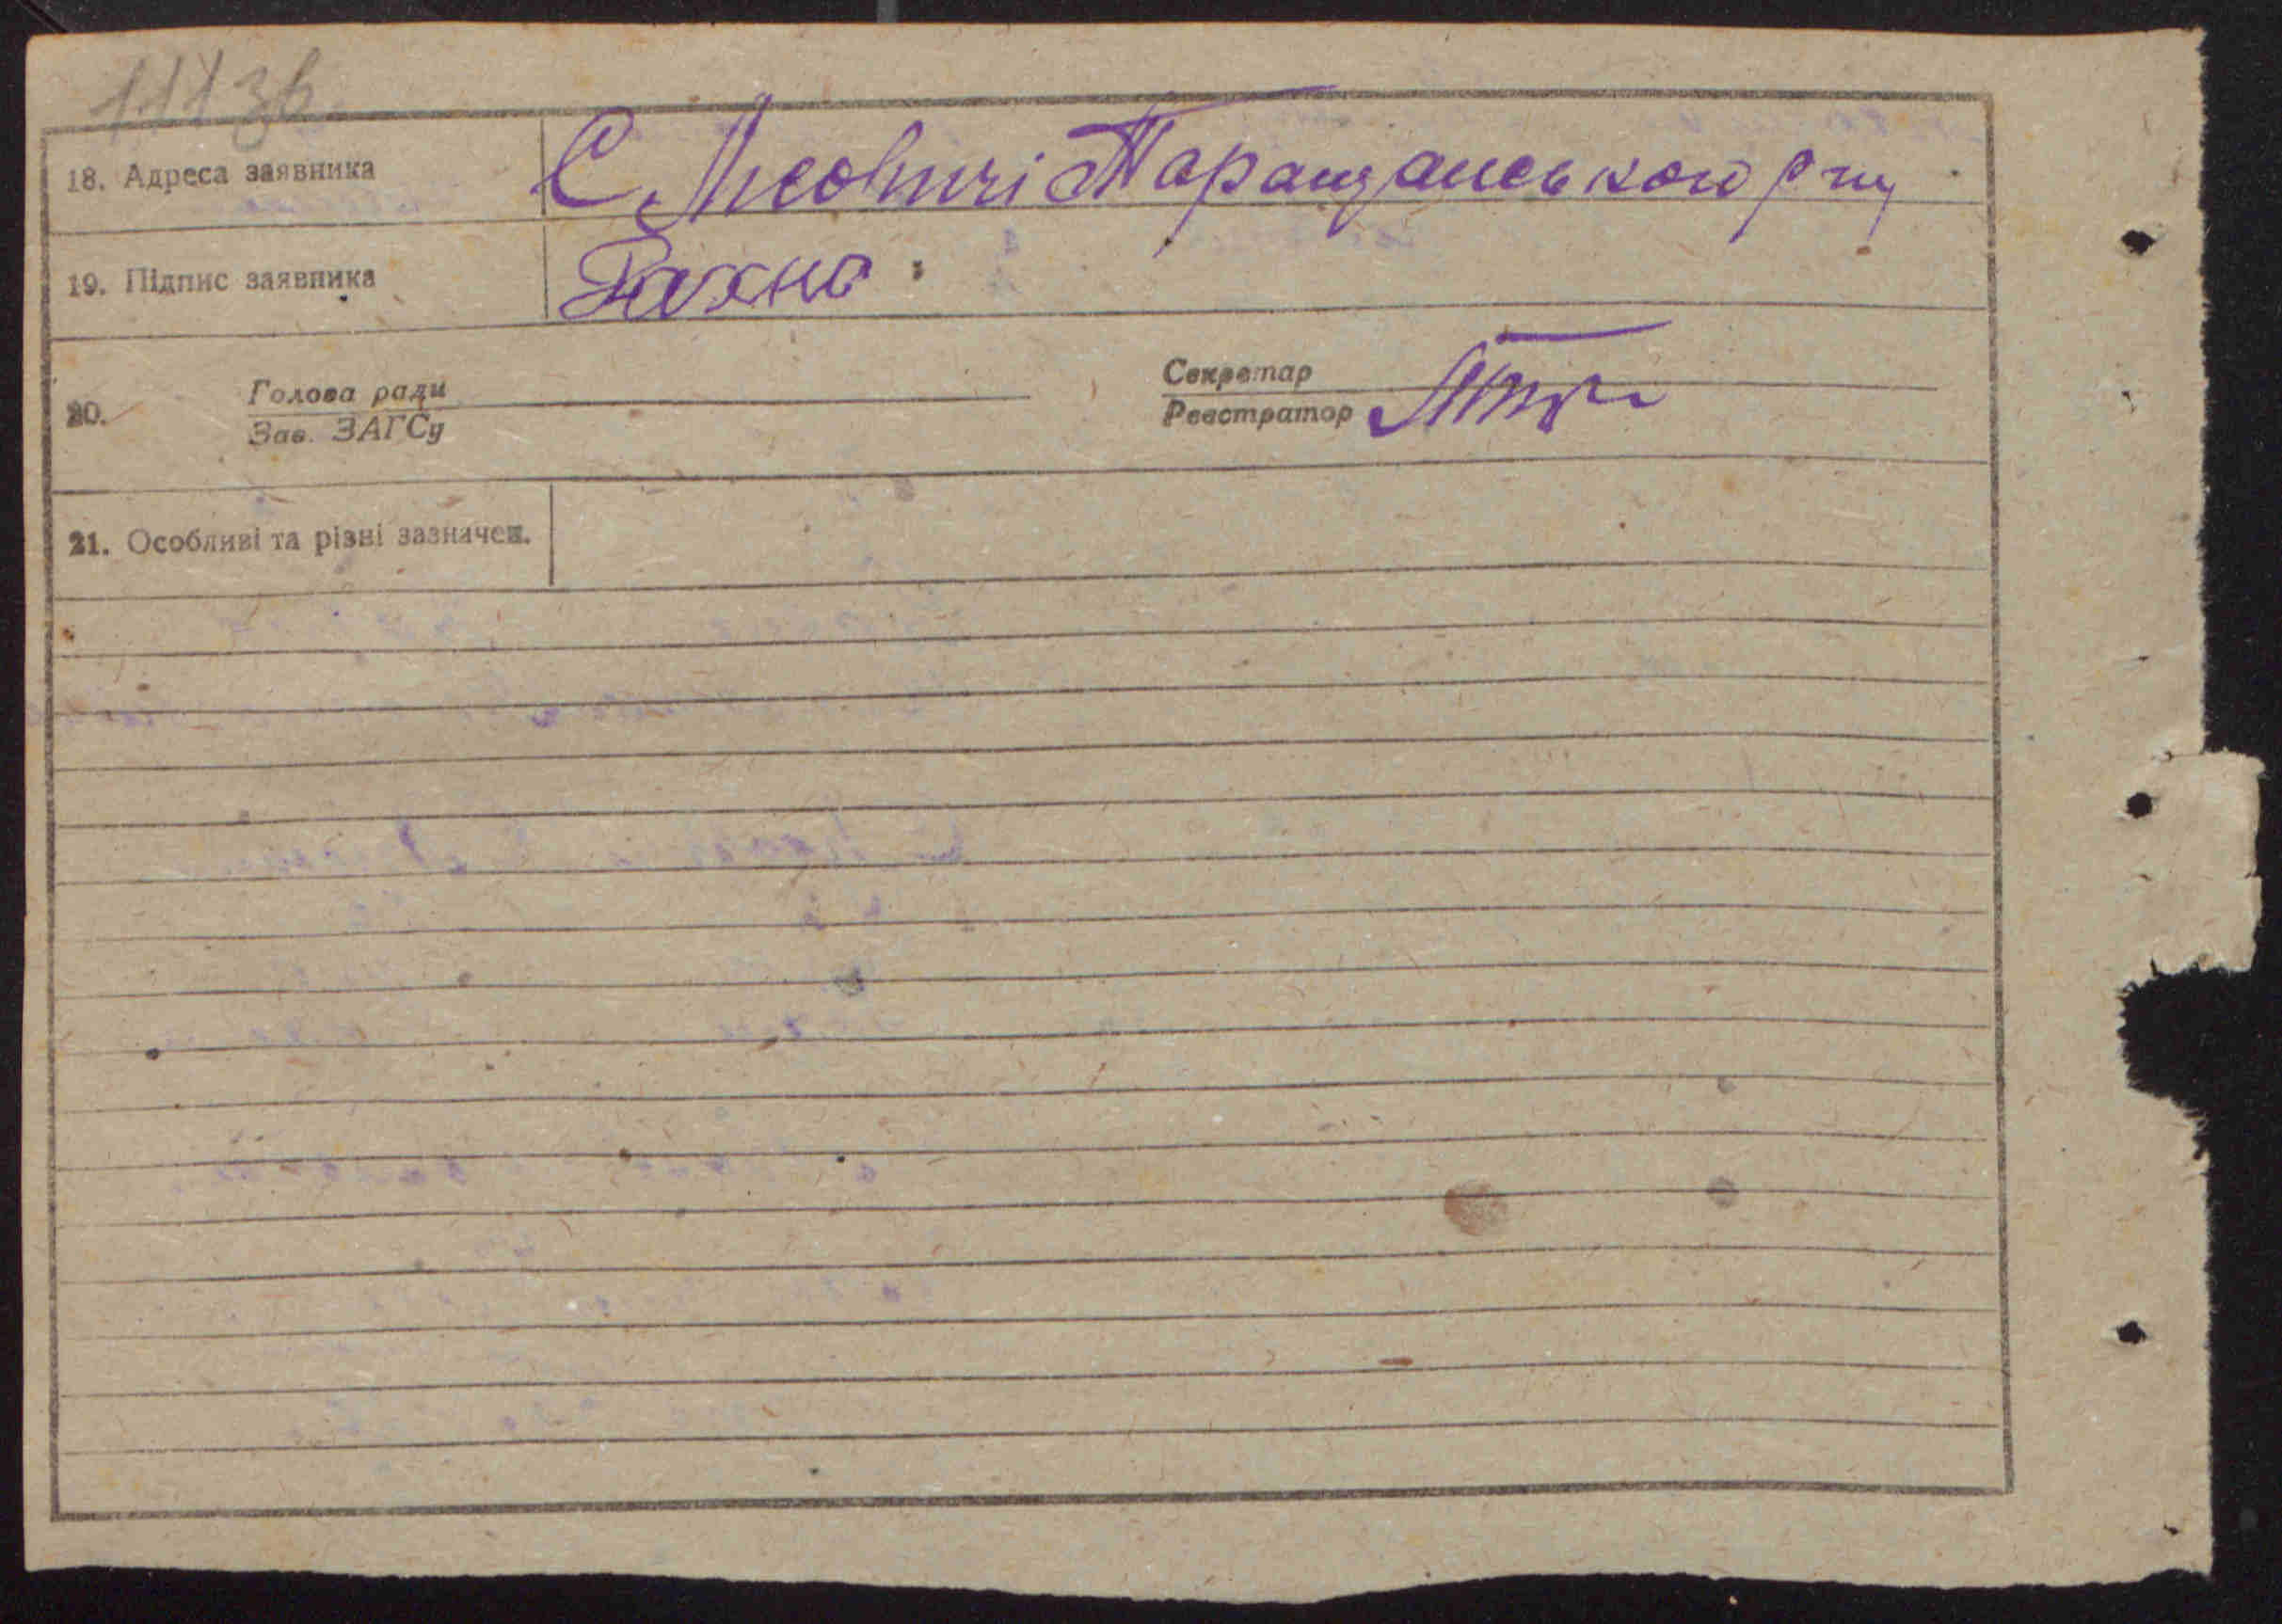 111 зв.
18. Адреса заявника С. Лісовичі Таращанського р-ну
19. Підпис заявника Рахно
Голова ради Секретар
20. Зав. ЗАГСу Реєстратор
21. Особливі та різні зазначен.